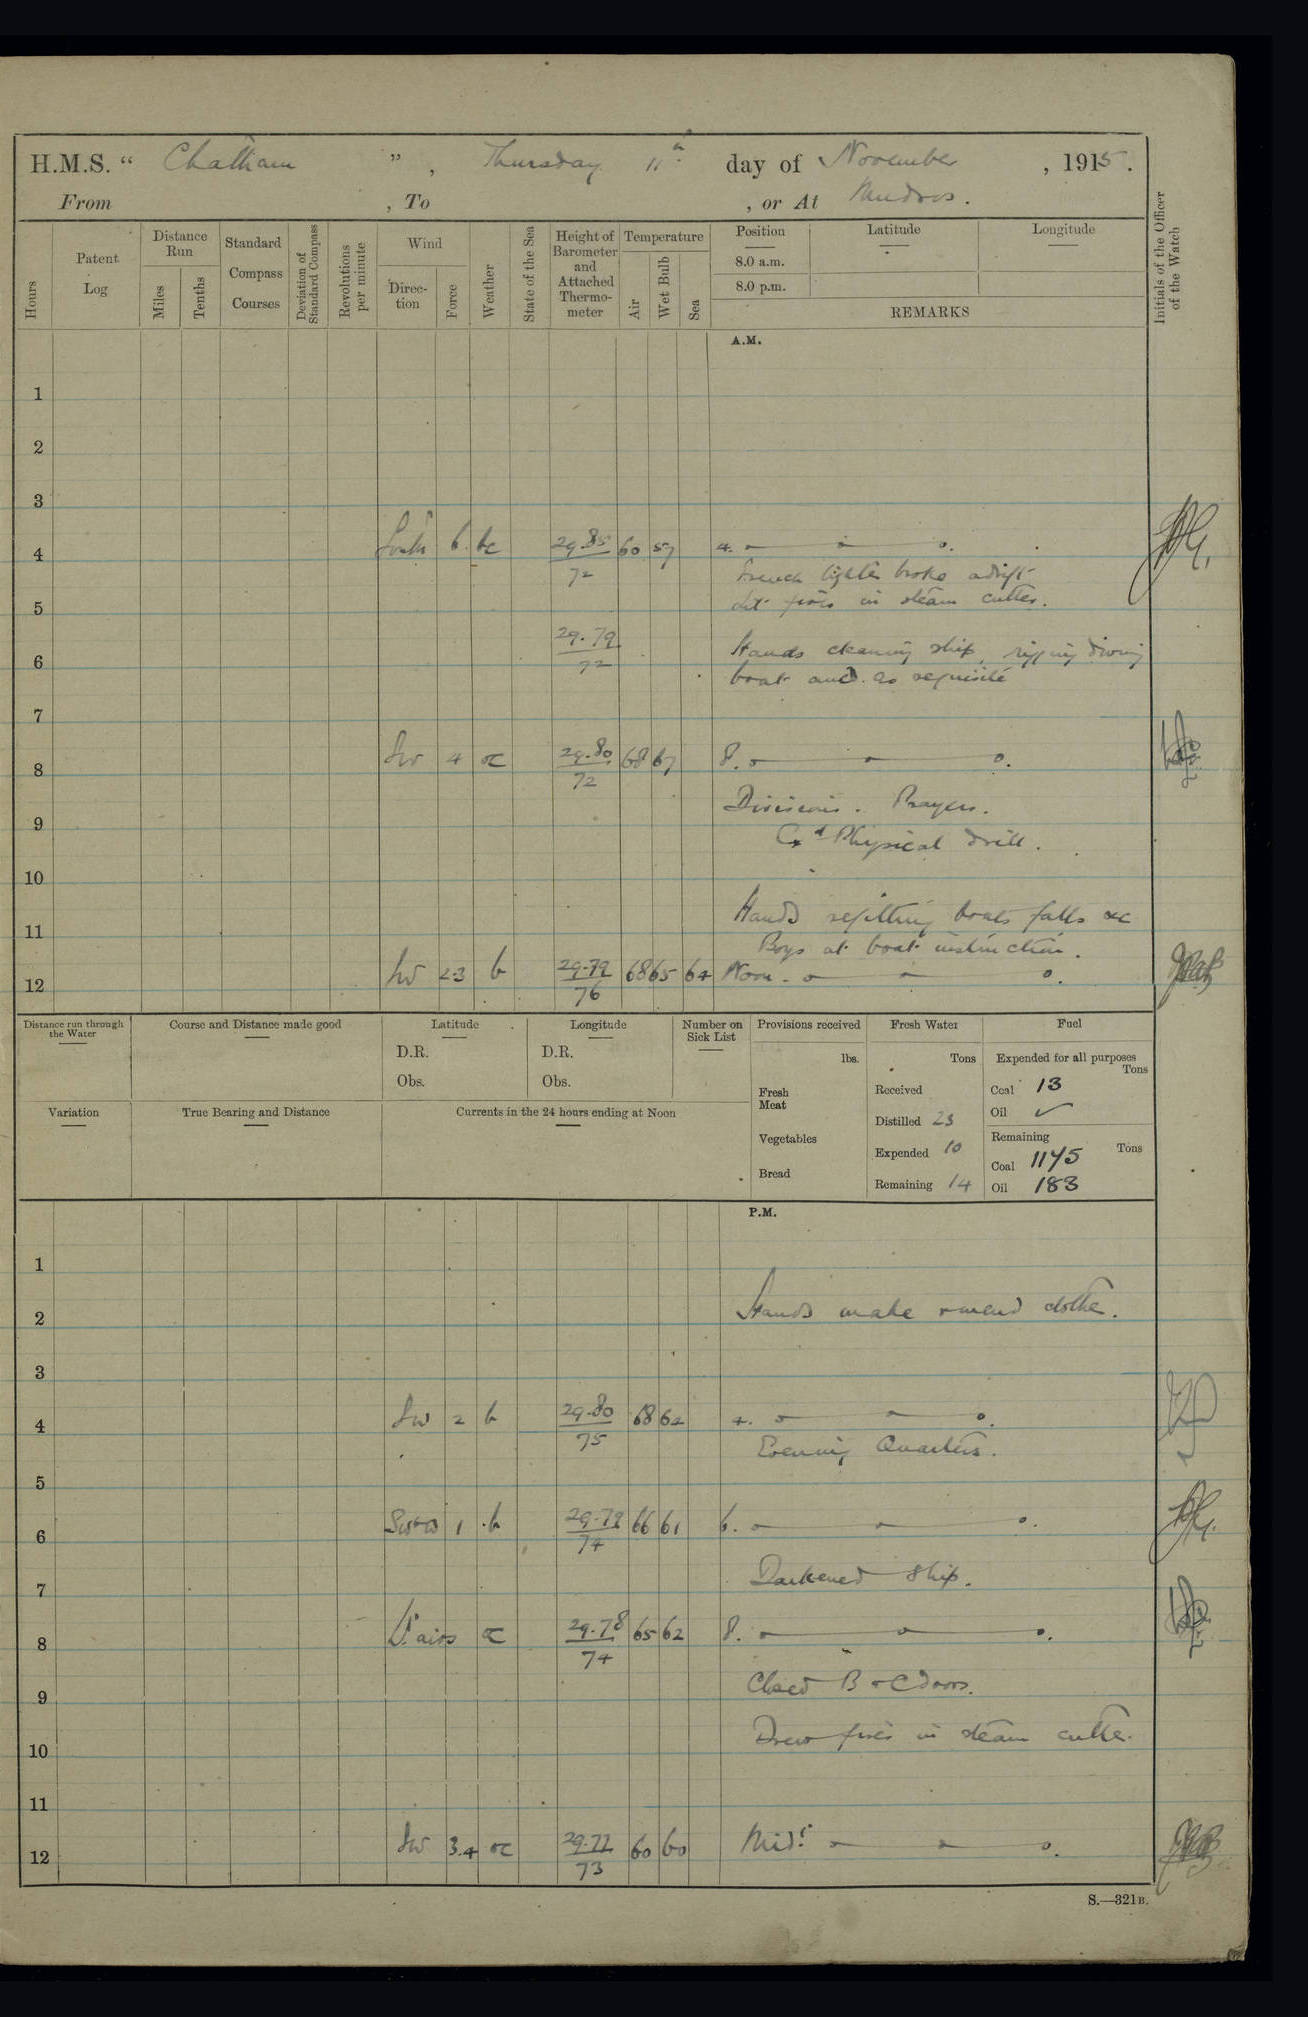 H.M.S. “ Chatham ” , Thursday 11th day of November , 1915 .
From , To , or At Mudros .
Hours
Patent Log
Distance Run
Miles
Tenths
Standard Compass Courses
Deviation of Standard Compass
Revolutions per minute
Wind
Direction
Force
Weather
State of the Sea
Height of Barometer and Attached Thermometer
Temperature
Air
Wet Bulb
Sea
Position
8.0 a.m.
8.0 p.m.
Latitude
Longitude
REMARKS
Initials of the Officer of the Watch
A.M.
1
2
3
4 South 6 bc 29.85 60 57 4.
72
French lighter broke adrift
Lit fires in steam cutter.
5
29.79
6 72 Hands cleaning ship, rigging diving
boat and as requisite
7
8 SW 4 oc 29.80 68 67 8.
72
Divisions. Prayers.
9
Cd Physical Drill.
10
Hands refitting boats falls &c
11
Boys at boat instruction.
12 SW 2-3 b 29.79 68 65 64 Noon
76
Distance run through the Water
Course and Distance made good
Latitude
D.R.
Obs.
Longitude
D.R.
Obs.
Number on Sick List
Provisions received
lbs.
Fresh Meat
Vegetables
Bread
Fresh Water
Tons
Received
Distilled 23
Expended 10
Remaining 14
Fuel
Expended for all purposes
Tons
Coal 13
Oil ✓
Remaining
Tons
Coal 1145
Oil 183
Variation
True Bearing and Distance
Currents in the 24 hours ending at Noon
P.M.
1
2 Hands make & mend clothes.
3
4 SW 2 b 29.80 68 62 4.
75
Evening Quarters.
5
6 SWbW 1 b 29.79 66 61 6.
74
Darkened ship.
7
8 Lt airs oc 29.78 65 62 8.
74
Closed B & C doors.
9
Drew fires in steam cutter.
10
11
12 SW 3.4 oc 29.77 60 60 Midt
73
S.—321B.